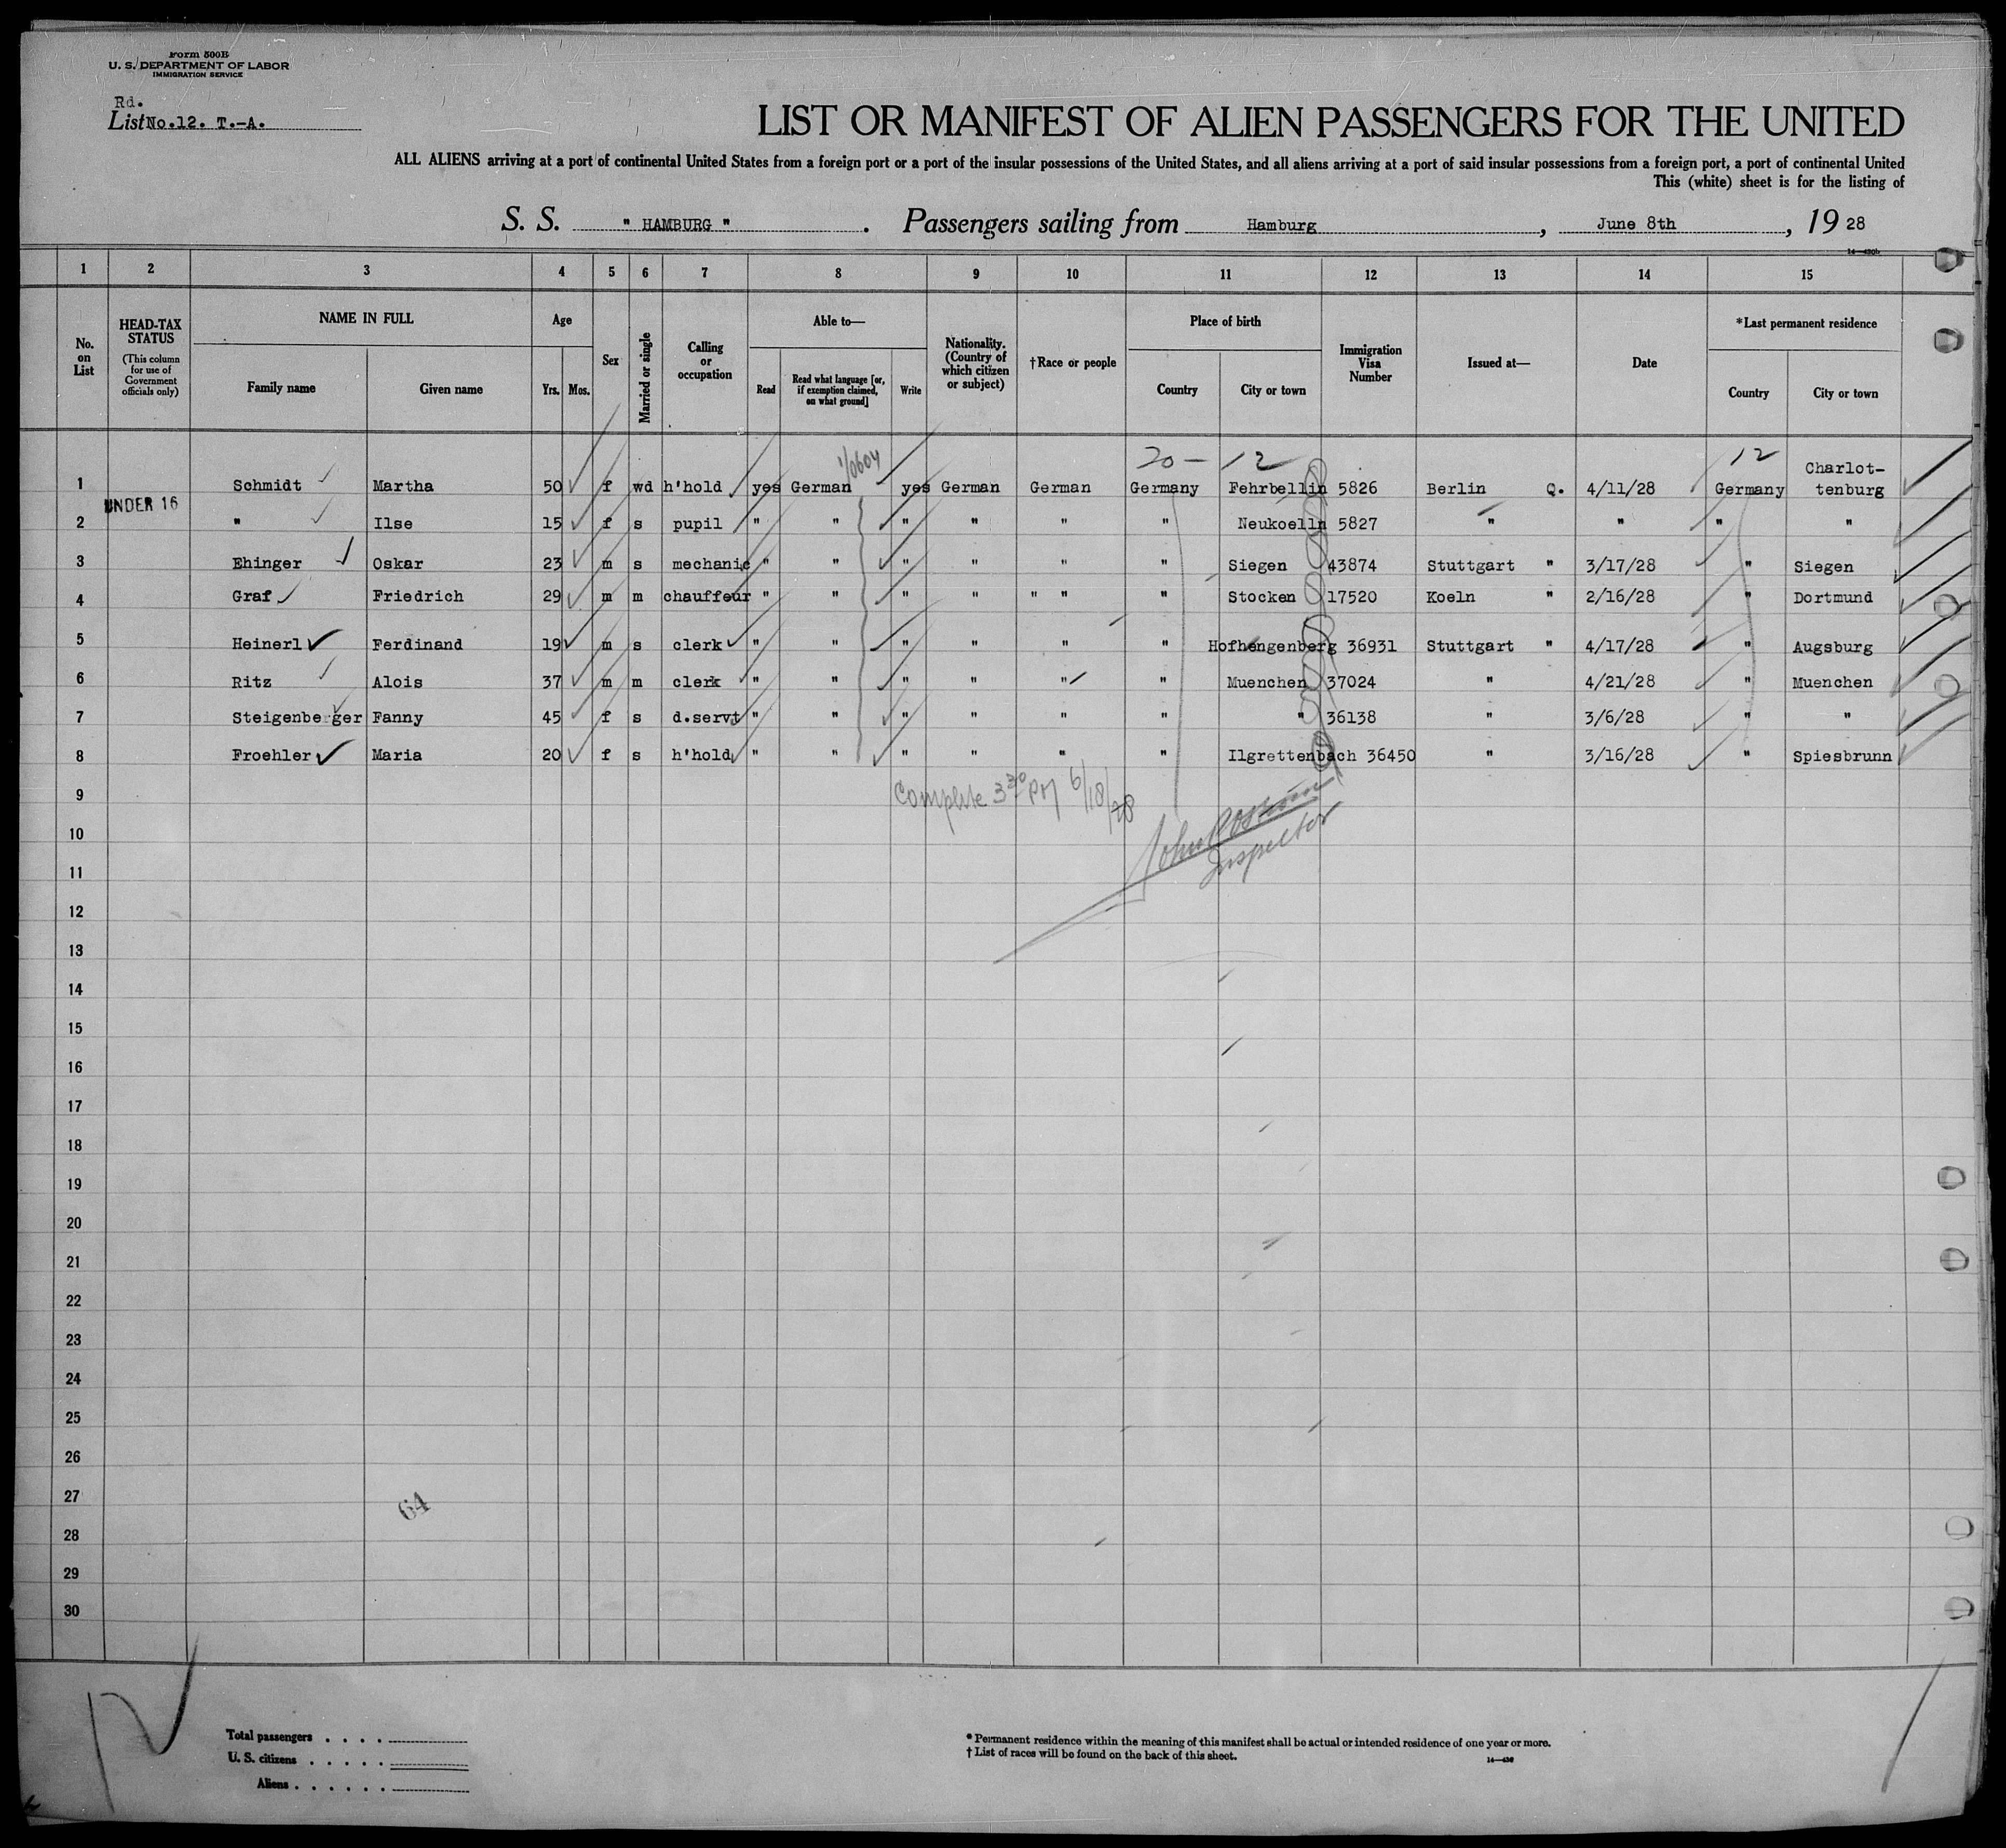 Form 500B
U. S. DEPARTMENT OF LABOR
IMMIGRATION SERVICE
Rd.
List No.12. T.-A.
LIST OR MANIFEST OF ALIEN PASSENGERS FOR THE UNITED
ALL ALIENS arriving at a port of continental United States from a foreign port or a port of the insular possessions of the United States, and all aliens arriving at a port of said insular possessions from a foreign port, a port of continental United
This (white) sheet is for the listing of
S. S. " HAMBURG " . Passengers sailing from Hamburg , June 8th , 19 28
1 2 3 4 5 6 7 8 9 10 11 12 13 14 15
No. on List
HEAD-TAX STATUS
(This column for use of Government officials only)
NAME IN FULL
Family name
Given name
Age
Yrs. Mos.
Sex
Married or single
Calling or occupation
Able to—
Read
Read what language [or, if exemption claimed, on what ground]
Write
Nationality. (Country of which citizen or subject)
†Race or people
Place of birth
Country
City or town
Immigration Visa Number
Issued at—
Date
*Last permanent residence
Country
City or town
20 - 12 12
1 Schmidt Martha 50 f wd h'hold yes German yes German German Germany Fehrbellin 5826 Berlin Q. 4/11/28 Germany Charlot-
tenburg
UNDER 16
2 " Ilse 15 f s pupil " " " " " " Neukoelln 5827 " " " "
3 Ehinger Oskar 23 m s mechanic " " " " " " Siegen 43874 Stuttgart " 3/17/28 " Siegen
4 Graf Friedrich 29 m m chauffeur " " " " " " " Stocken 17520 Koeln " 2/16/28 " Dortmund
5 Heinerl Ferdinand 19 m s clerk " " " " " " Hofhengenberg 36931 Stuttgart " 4/17/28 " Augsburg
6 Ritz Alois 37 m m clerk " " " " " " Muenchen 37024 " 4/21/28 " Muenchen
7 Steigenberger Fanny 45 f s d.servt " " " " " " " 36138 " 3/6/28 " "
8 Froehler Maria 20 f s h'hold " " " " " " Ilgrettenbach 36450 " 3/16/28 " Spiesbrunn
9
Complete 3 30 PM 6/18/28
10
John
Inspector
11
12
13
14
15
16
17
18
19
20
21
22
23
24
25
26
27
64
28
29
30
Total passengers . . . .
U. S. citizens . . . . .
Aliens . . . . . .
* Permanent residence within the meaning of this manifest shall be actual or intended residence of one year or more.
† List of races will be found on the back of this sheet.
14—430